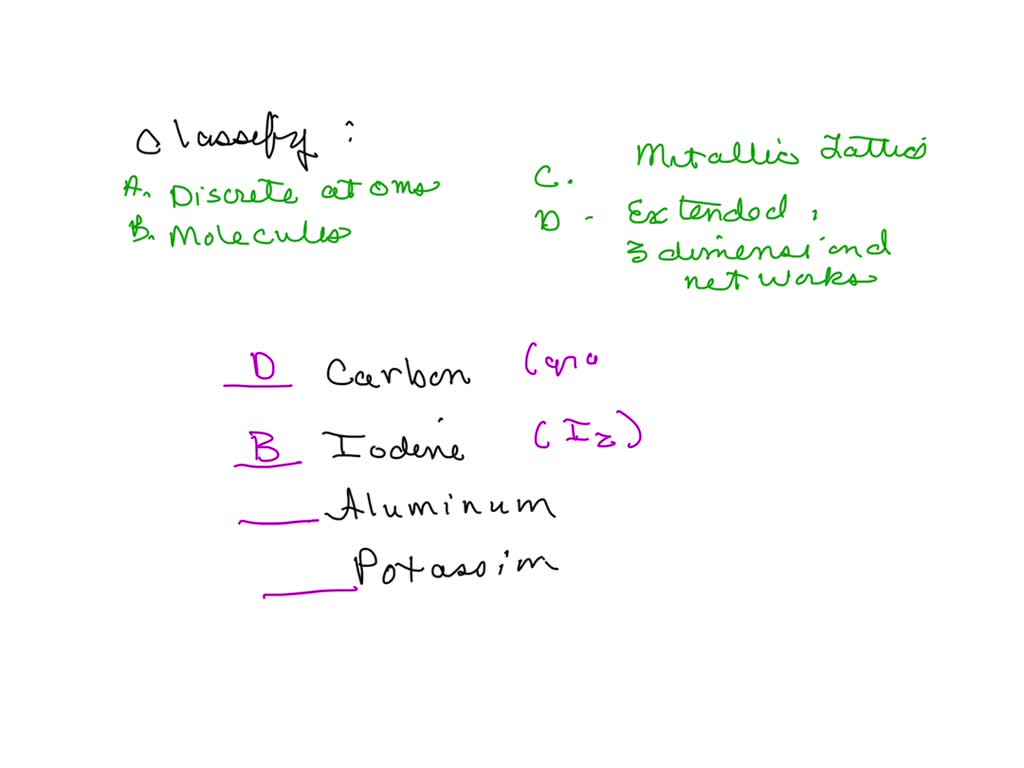 Classify :
A. Discrete atoms
B. Molecules
C. Metallic Lattice
D - Extended,
3 dimensional
networks
D Carbon (gra
B Iodine (I2)
Aluminum
Potassim